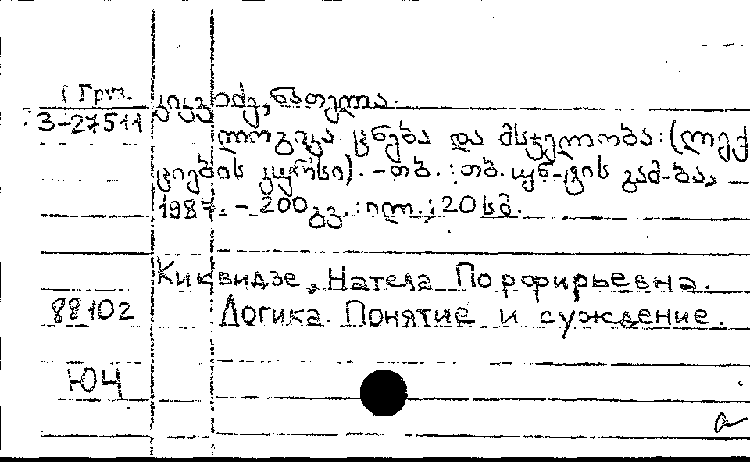 Груз.
კიკვიძე, ნათელა.
3-27511
ლოგიკა. ცნება და მსჯელობა: (ლექ
ციების კურსი). - თბ. : თბ. უნ-ტის გამ-ბა,
1987. - 200 გვ. : ილ. ; 20 სმ.
Киквидзе, Натела Порфирьевна.
88102
Логика. Понятие и суждение.
ЮЧ